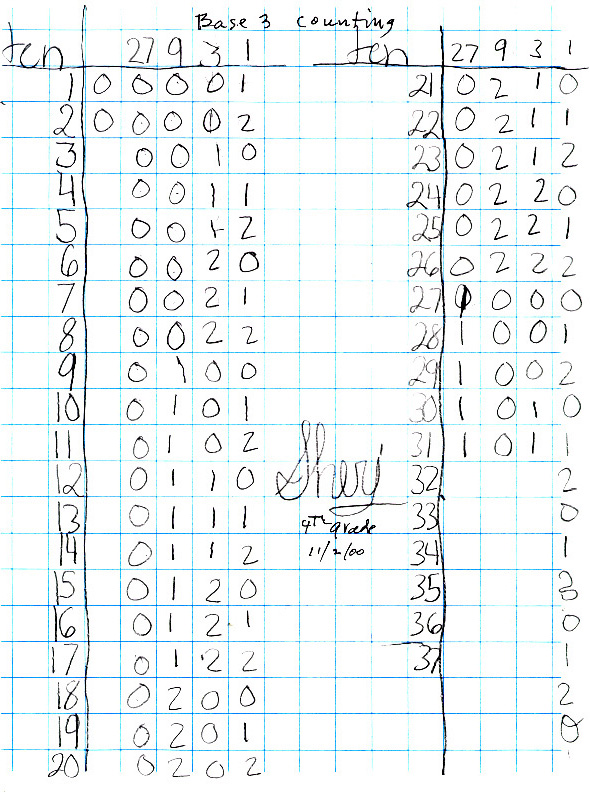 Base 3 counting
ten 27 9 3 1
1 0 0 0 0 1
2 0 0 0 0 2
3 0 0 1 0
4 0 0 1 1
5 0 0 1 2
6 0 0 2 0
7 0 0 2 1
8 0 0 2 2
9 0 1 0 0
10 0 1 0 1
11 0 1 0 2
12 0 1 1 0
13 0 1 1 1
14 0 1 1 2
15 0 1 2 0
16 0 1 2 1
17 0 1 2 2
18 0 2 0 0
19 0 2 0 1
20 0 2 0 2
Sheri
4th grade
11/2/00
ten 27 9 3 1
21 0 2 1 0
22 0 2 1 1
23 0 2 1 2
24 0 2 2 0
25 0 2 2 1
26 0 2 2 2
27 1 0 0 0
28 1 0 0 1
29 1 0 0 2
30 1 0 1 0
31 1 0 1 1
32 2
33 0
34 1
35
36 0
37 1
2
0